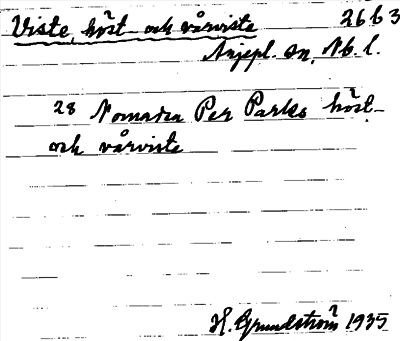 Viste, höst- och vårviste 2663
Arjepl. sn, Nb. l.
28 Nomaden Per Parks höst-
och vårviste
H. Grundström 1935